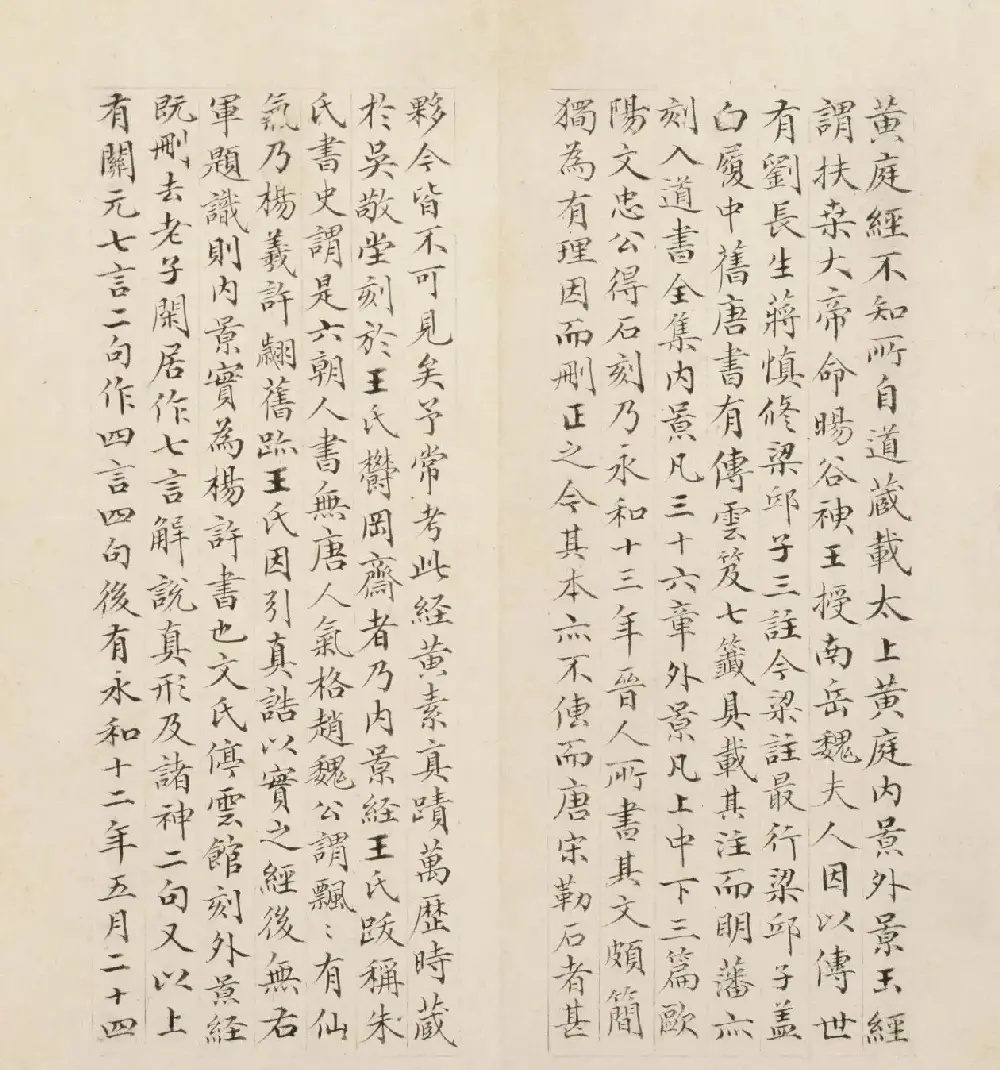 黃庭經不知所自道藏載太上黃庭內景外景玉經
謂扶桒大帝命暘谷神王授南岳魏夫人因以傳世
有劉長生蔣慎修梁邱子三註今梁註最行梁邱子盖
白履中舊唐書有傳雲笈七籤具載其注而明藩亦
刻入道書全集內景凡三十六章外景凡上中下三篇歐
陽文忠公得石刻乃永和十三年晉人所書其文頗簡
獨為有理因而刪正之今其本亦不傳而唐宋勒石者甚
夥今皆不可見矣予常考此經黃素真蹟萬歷時藏
於吳敬堂刻於王氏欝岡齋者乃內景経王氏跋稱朱
氏書史謂是六朝人書無唐人氣格趙魏公謂飄〻有仙
氣乃楊羲許翽舊跡王氏因引真誥以實之經後無右
軍題識則內景實為楊許書也文氏停雲館刻外景経
既刪去老子閑居作七言解說真形及諸神二句又以上
有關元七言二句作四言四句後有永和十二年五月二十四